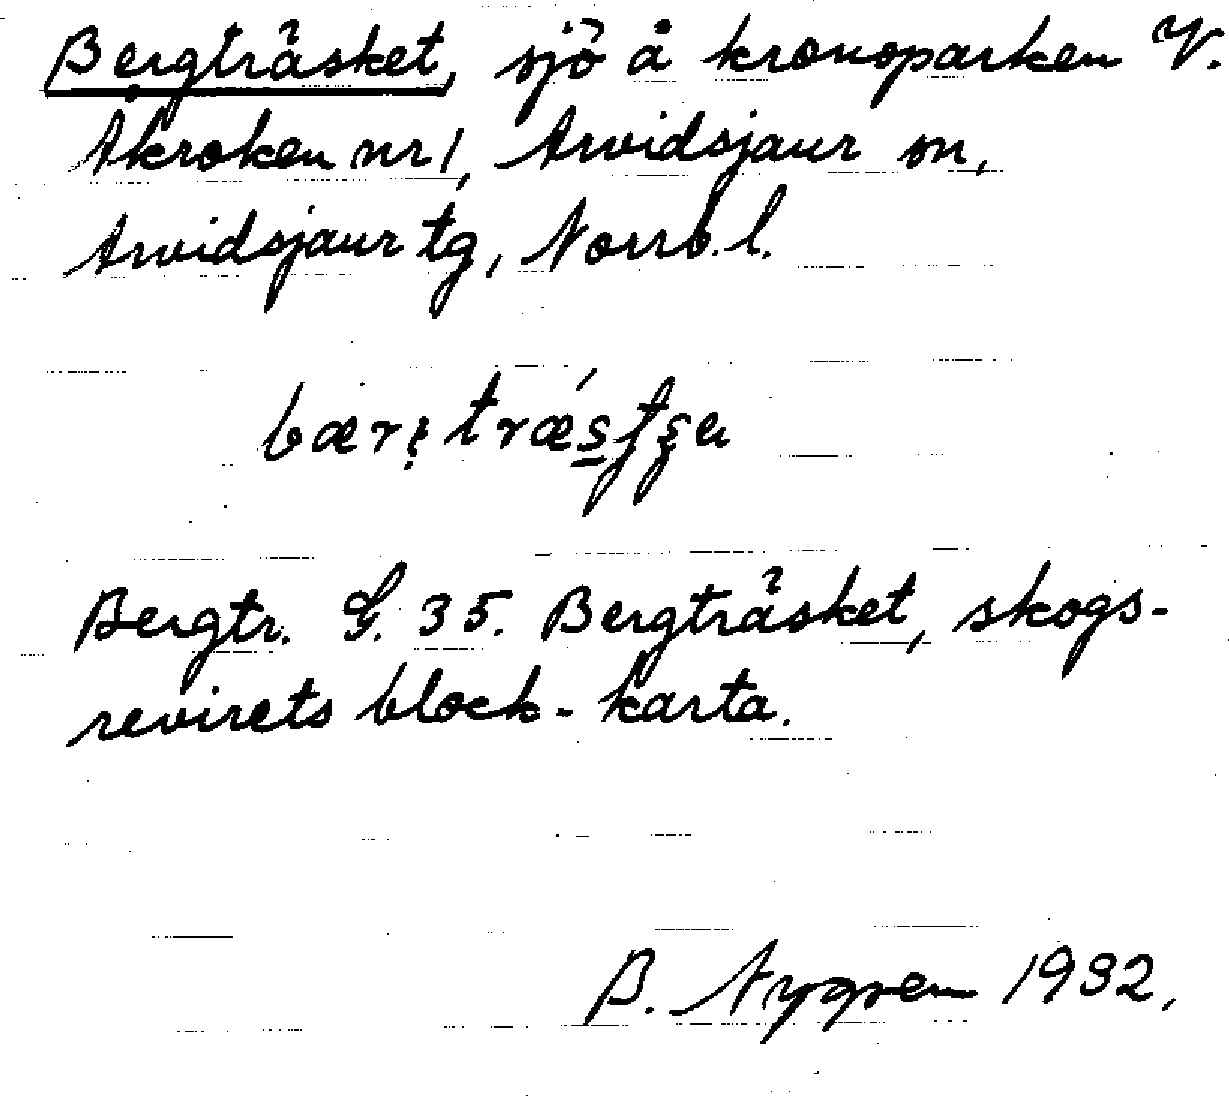 Bergträsket, sjö å kronoparken V.
Åkroken nr 1, Arvidsjaur sn,
Arvidsjaur tg, Norrb. l.
Bergtr. G. 35. Bergträsket, skogs-
revirets block-karta.
B. Nygren 1932.